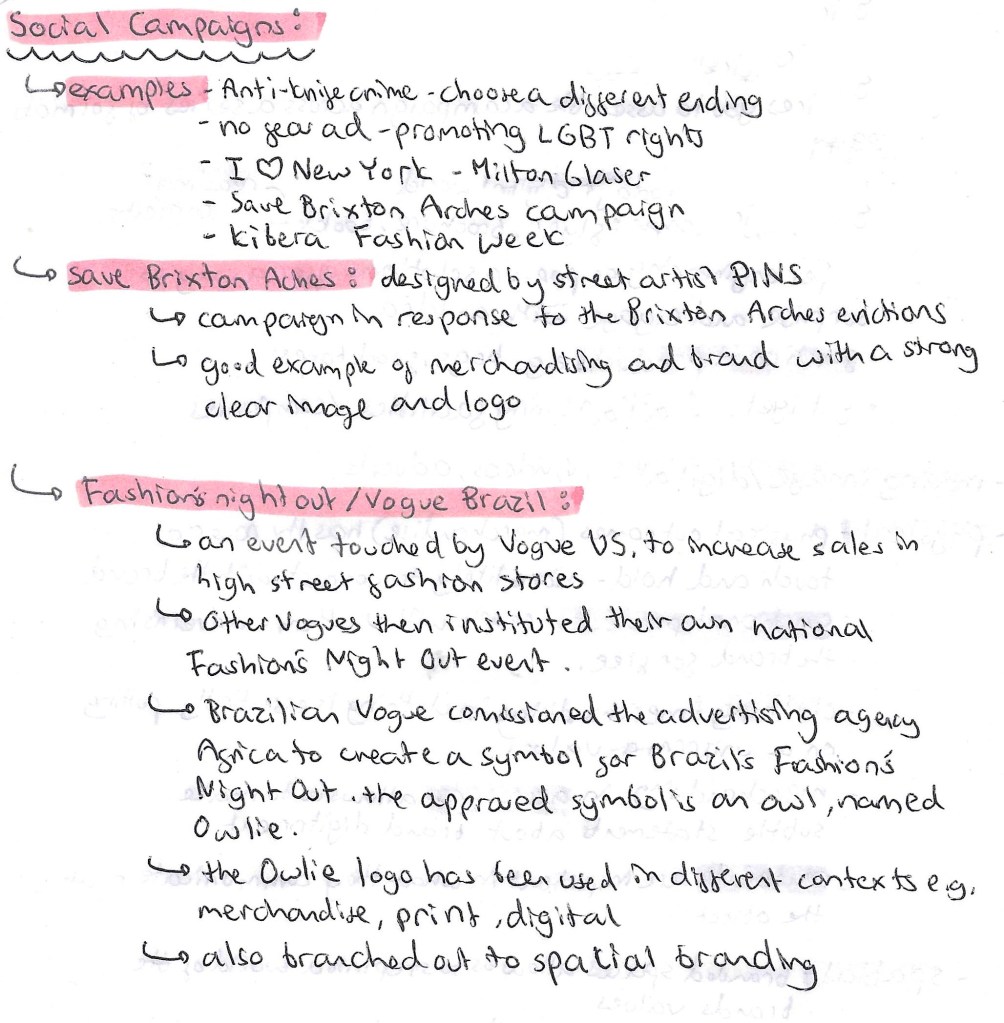 Social Campaigns:
↳ examples - Anti-knife crime - choose a different ending
- no fear ad - promoting LGBT rights
- I ♡ New York - Milton Glaser
- Save Brixton Arches campaign
- Kibera Fashion Week
↳ Save Brixton Aches: designed by street artist PINS
↳ campaign in response to the Brixton Arches evictions
↳ good example of merchandising and brand with a strong
clear image and logo
↳ Fashion's night out / Vogue Brazil:
↳ an event touched by Vogue US, to increase sales in
high street fashion stores
↳ Other Vogues then instituted their own national
Fashion's Night Out event.
↳ Brazilian Vogue comissioned the advertising agency
Africa to create a symbol for Brazil's Fashion's
Night Out. the approved symbol is an owl, named
Owlie.
↳ the Owlie logo has been used in different contexts e.g.
merchandise, print, digital
↳ also branched out to spatial branding